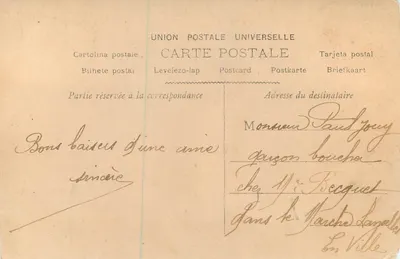 UNION POSTALE UNIVERSELLE
Cartolina postale CARTE POSTALE Tarjeta postal
Bilhete postal Levelezo-lap Postcard Postkarte Briefkaart
Partie réservée à la correspondance
Bons baisers d'une amie
sincère
Adresse du destinataire
Monsieur Paul Jouy
garçon boucher
chez Mr Becquet
dans le Marché
En Ville